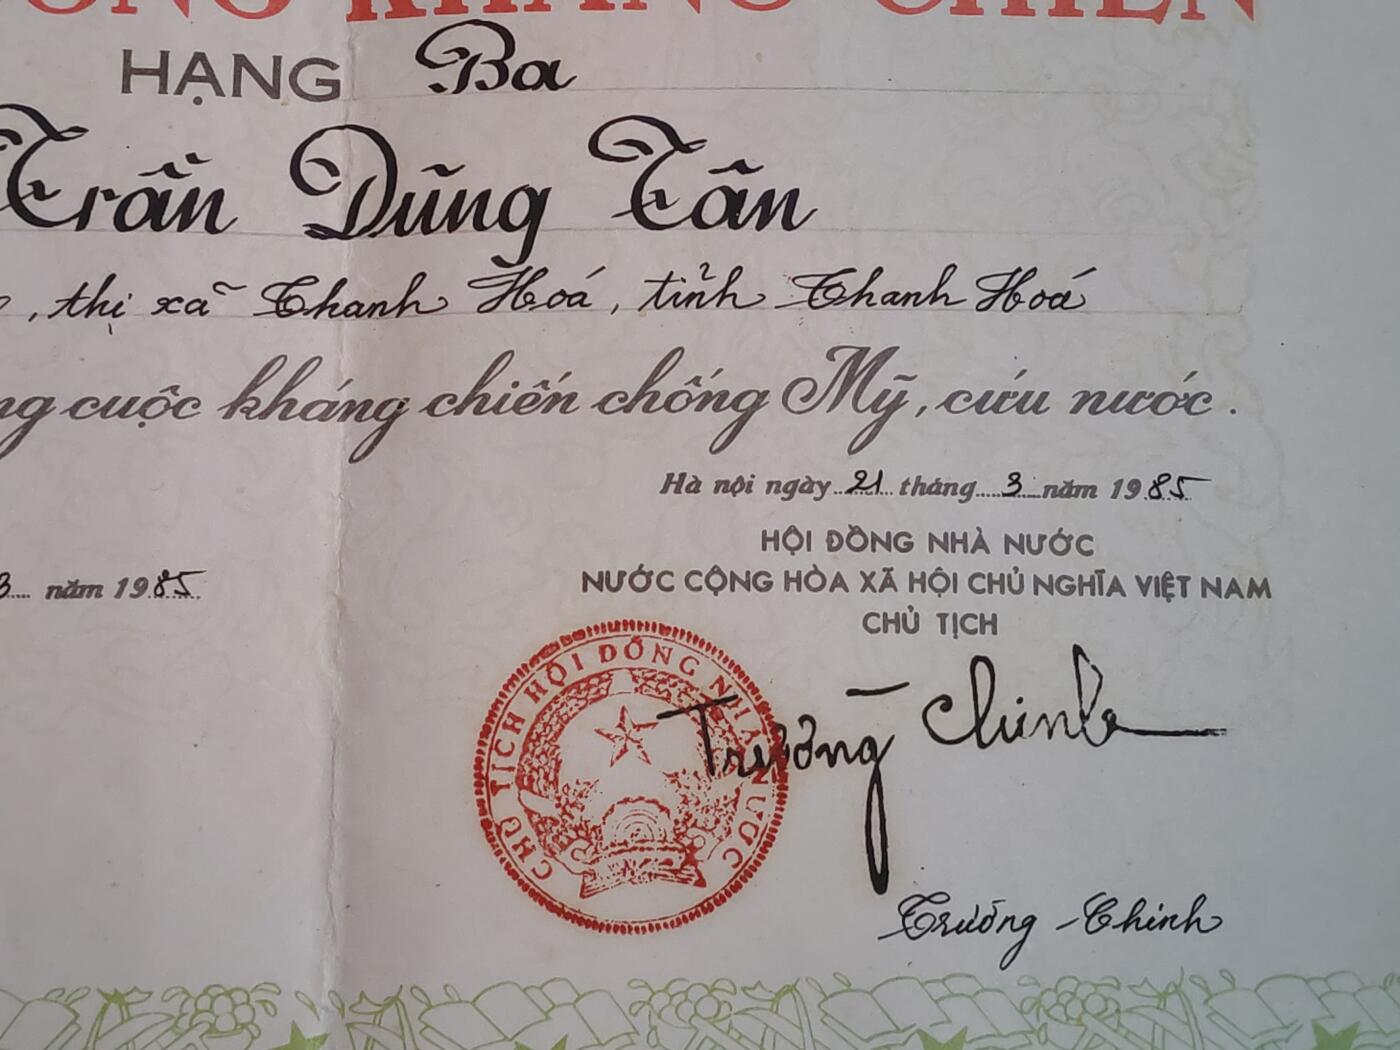 KHÁNG CHIẾN
HẠNG Ba
Trần Dũng Tân
, thị xã Thanh Hoá, tỉnh Thanh Hoá
cuộc kháng chiến chống Mỹ, cứu nước.
Hà nội ngày 21 tháng 3 năm 1985
HỘI ĐỒNG NHÀ NƯỚC
NƯỚC CỘNG HÒA XÃ HỘI CHỦ NGHĨA VIỆT NAM
CHỦ TỊCH
3 năm 1985
CHỦ TỊCH HỘI ĐỒNG NHÀ NƯỚC
Trường Chinh
Trường-Chinh